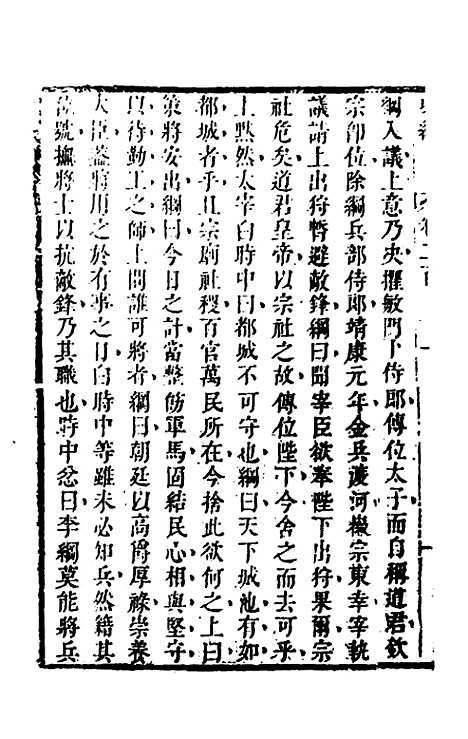 綱入議上意乃决擢敏門下侍郎傳位太子而自稱道君欽
宗卽位除綱兵部侍郎靖康元年金兵渡河徽宗東幸宰執
議請上出狩暫避敵鋒綱曰聞宰臣欲奉陛下出狩果爾宗
社危矣道君皇帝以宗社之故傳位陛下今舍之而去可乎
上黙然太宰白時中曰都城不可守也綱曰天下城池有如
都城者乎且宗廟社稷百官萬民所在今捨此欲何之上曰
策將安出綱曰今日之計當整飭軍馬固結民心相與堅守
以待勤王之師上問誰可將者綱曰朝廷以高爵厚祿崇養
大臣蓋將用之於有事之日白時中等雖未必知兵然籍其
位號撫將士以抗敵鋒乃其職也時中忿曰李綱莫能將兵